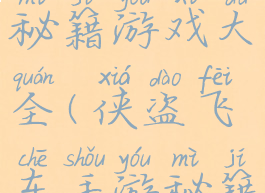 mì jí yóu xì dà
秘籍游戏大
quán xiá dào fēi
全(侠盗飞
chē shǒu yóu mì jí
车手游秘籍